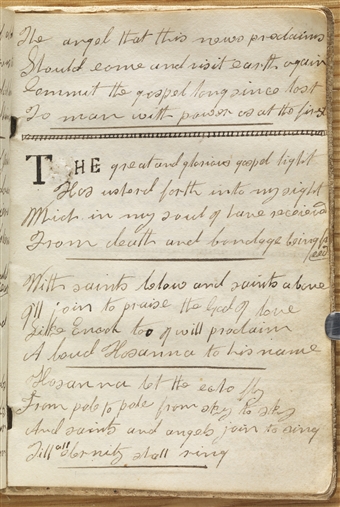 The angel that this news proclaims
Should come and visit earth again
Commit the gospel long since lost
To man with power as at the first
THE great and glorious gospel light
Has usterd forth into my sight
Which in my soul I have received
From death and bondage being fre
eed
With saints below and saints above
I'll join to praise the God of love
Like Enoch too I will proclaim
A loud Hosanna to his name
Hosanna let the echo fly
From pole to pole from sky to sky
And saints and angels join to sing
Till all eternity shall ring